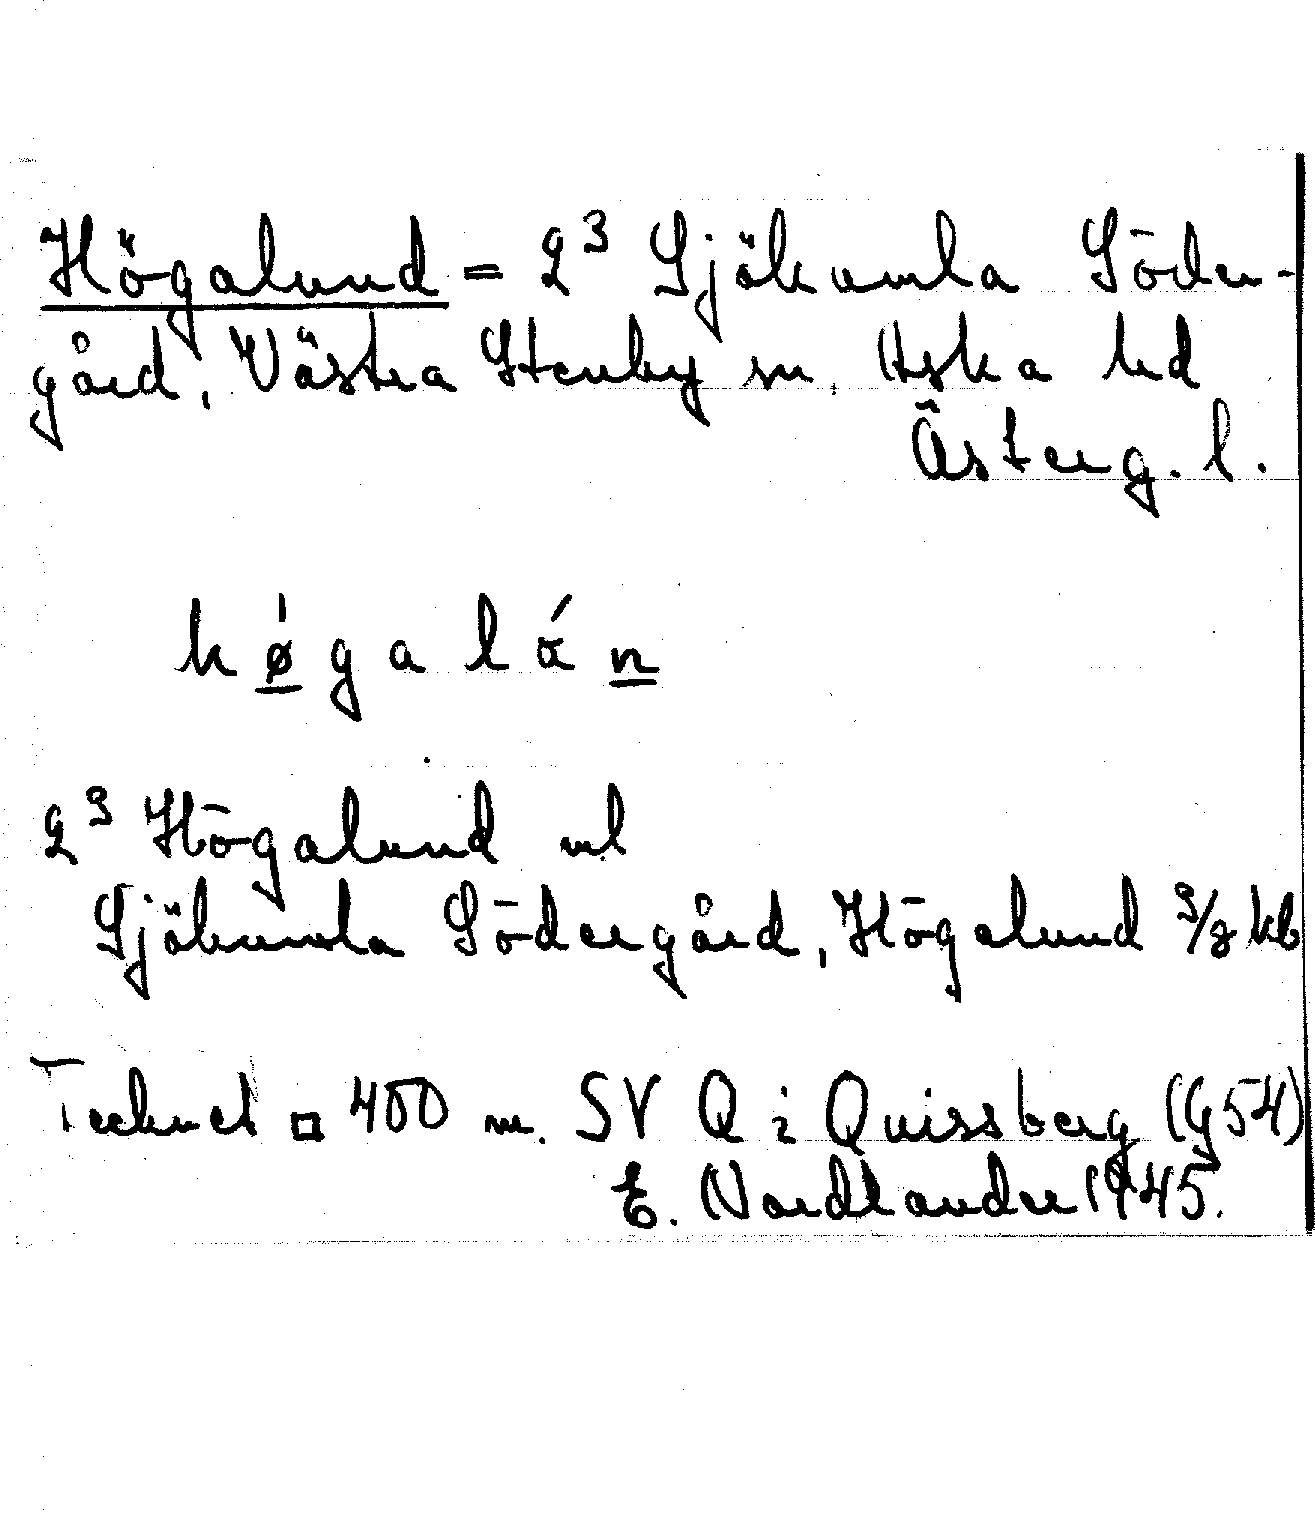 Högalund = 2³ Sjökumla Söder-
gård, Västra Stenby sn, Aska hd
Österg. l.
hǿ̲galɑ́n̲
2³ Högalund ml
Sjökumla Södergård, Högalund 3/8 kb
Tecknet □ 400 m. SV Q i Quissberg (G54)
E. Nordlander 1945.